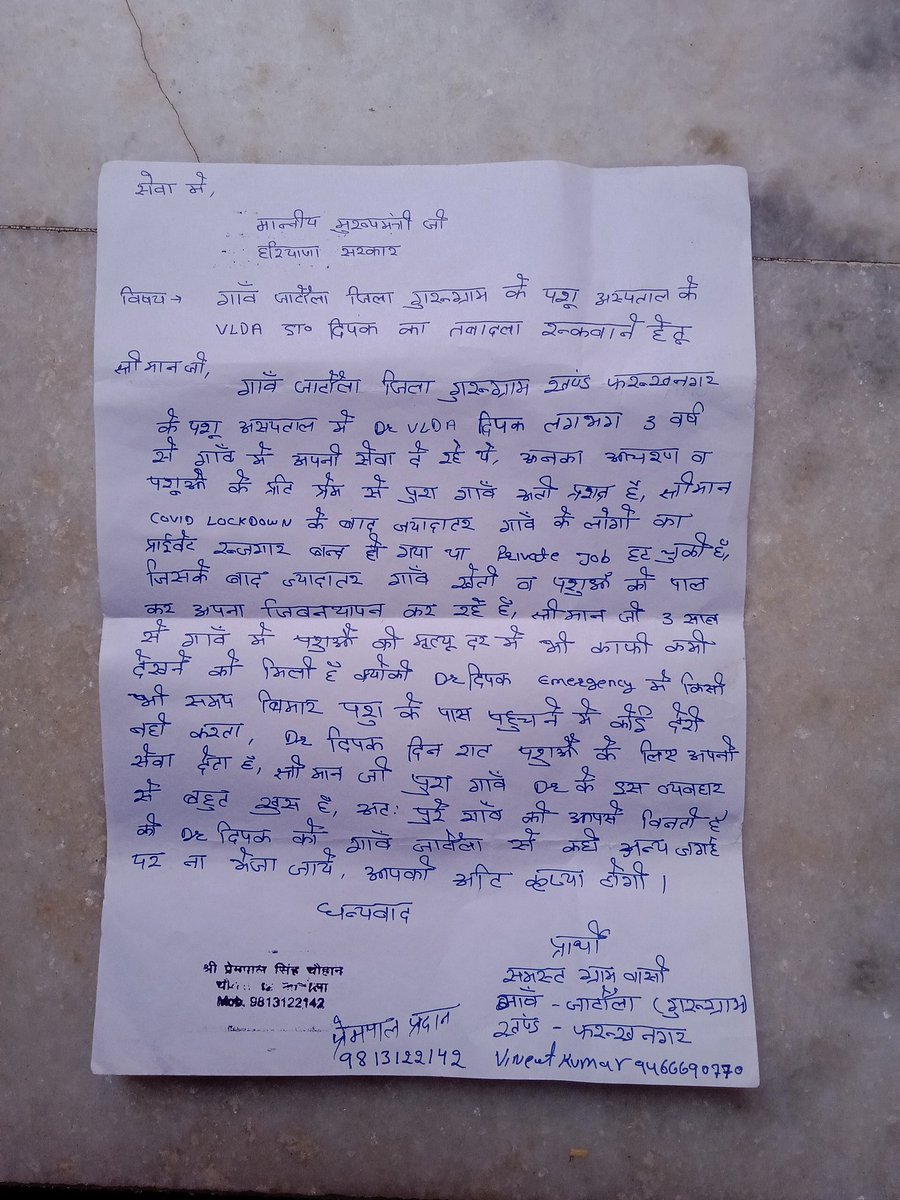 सेवा में,
मान्नीय मुख्यमंत्री जी
हरियाणा सरकार
विषय → गाँव जाटौला जिला गुरूग्राम के पशू अस्पताल के
VLDA डा० दिपक का तबादला रूकवाने हेतू
श्री मान जी,
गाँव जाटौला जिला गुरूग्राम खण्ड फरूखनगर
के पशू अस्पताल में Dr VLDA दिपक लगभग 3 वर्ष
से गाँव में अपनी सेवा दे रहे थे, उनका आचरण व
पशूऔ के प्रति प्रेम से पुरा गाँव अती प्रशन्न है, श्री मान
COVID LOCKDOWN के बाद ज्यादातर गाँव के लोगो का
प्राईवेट रूजगार बन्ध हो गया या Private Job हट चुकी है,
जिसके बाद ज्यादातर गाँव खेती व पशुऔ को पाल
कर अपना जिवनयापन कर रहे है, श्री मान जी 3 साल
से गाँव में पशुऔ की मृत्यू दर में भी काफी कमी
देखने को मिली है क्योकी Dr दिपक Emergency में किसी
भी समय बिमार पशु के पास पहुंचने में कोई देरी
नही करता, Dr दिपक दिन रात पशुऔ के लिए अपनी
सेवा देता है, श्री मान जी पुरा गाँव Dr के इस व्यवहार
से बहुत खुस है, अतः पुरे गाँव की आपसे विनती है
की Dr दिपक को गाँव जाटौला से कही अन्य जगह
पर ना भेजा जाये, आपकी अति कृप्या होगी ।
धन्यवाद
प्रार्थी
समस्त ग्राम वासी
गाँव - जाटौला (गुरूग्राम)
खण्ड - फरूखनगर
Vineet Kumar 9466690770
श्री प्रेमपाल सिंह चौहान
Mob. 9813122142
प्रेमपाल प्रधान
9813122142